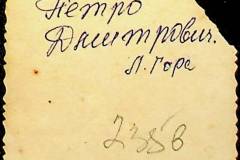 Петро
Дмитрович.
Л. Гора
2358